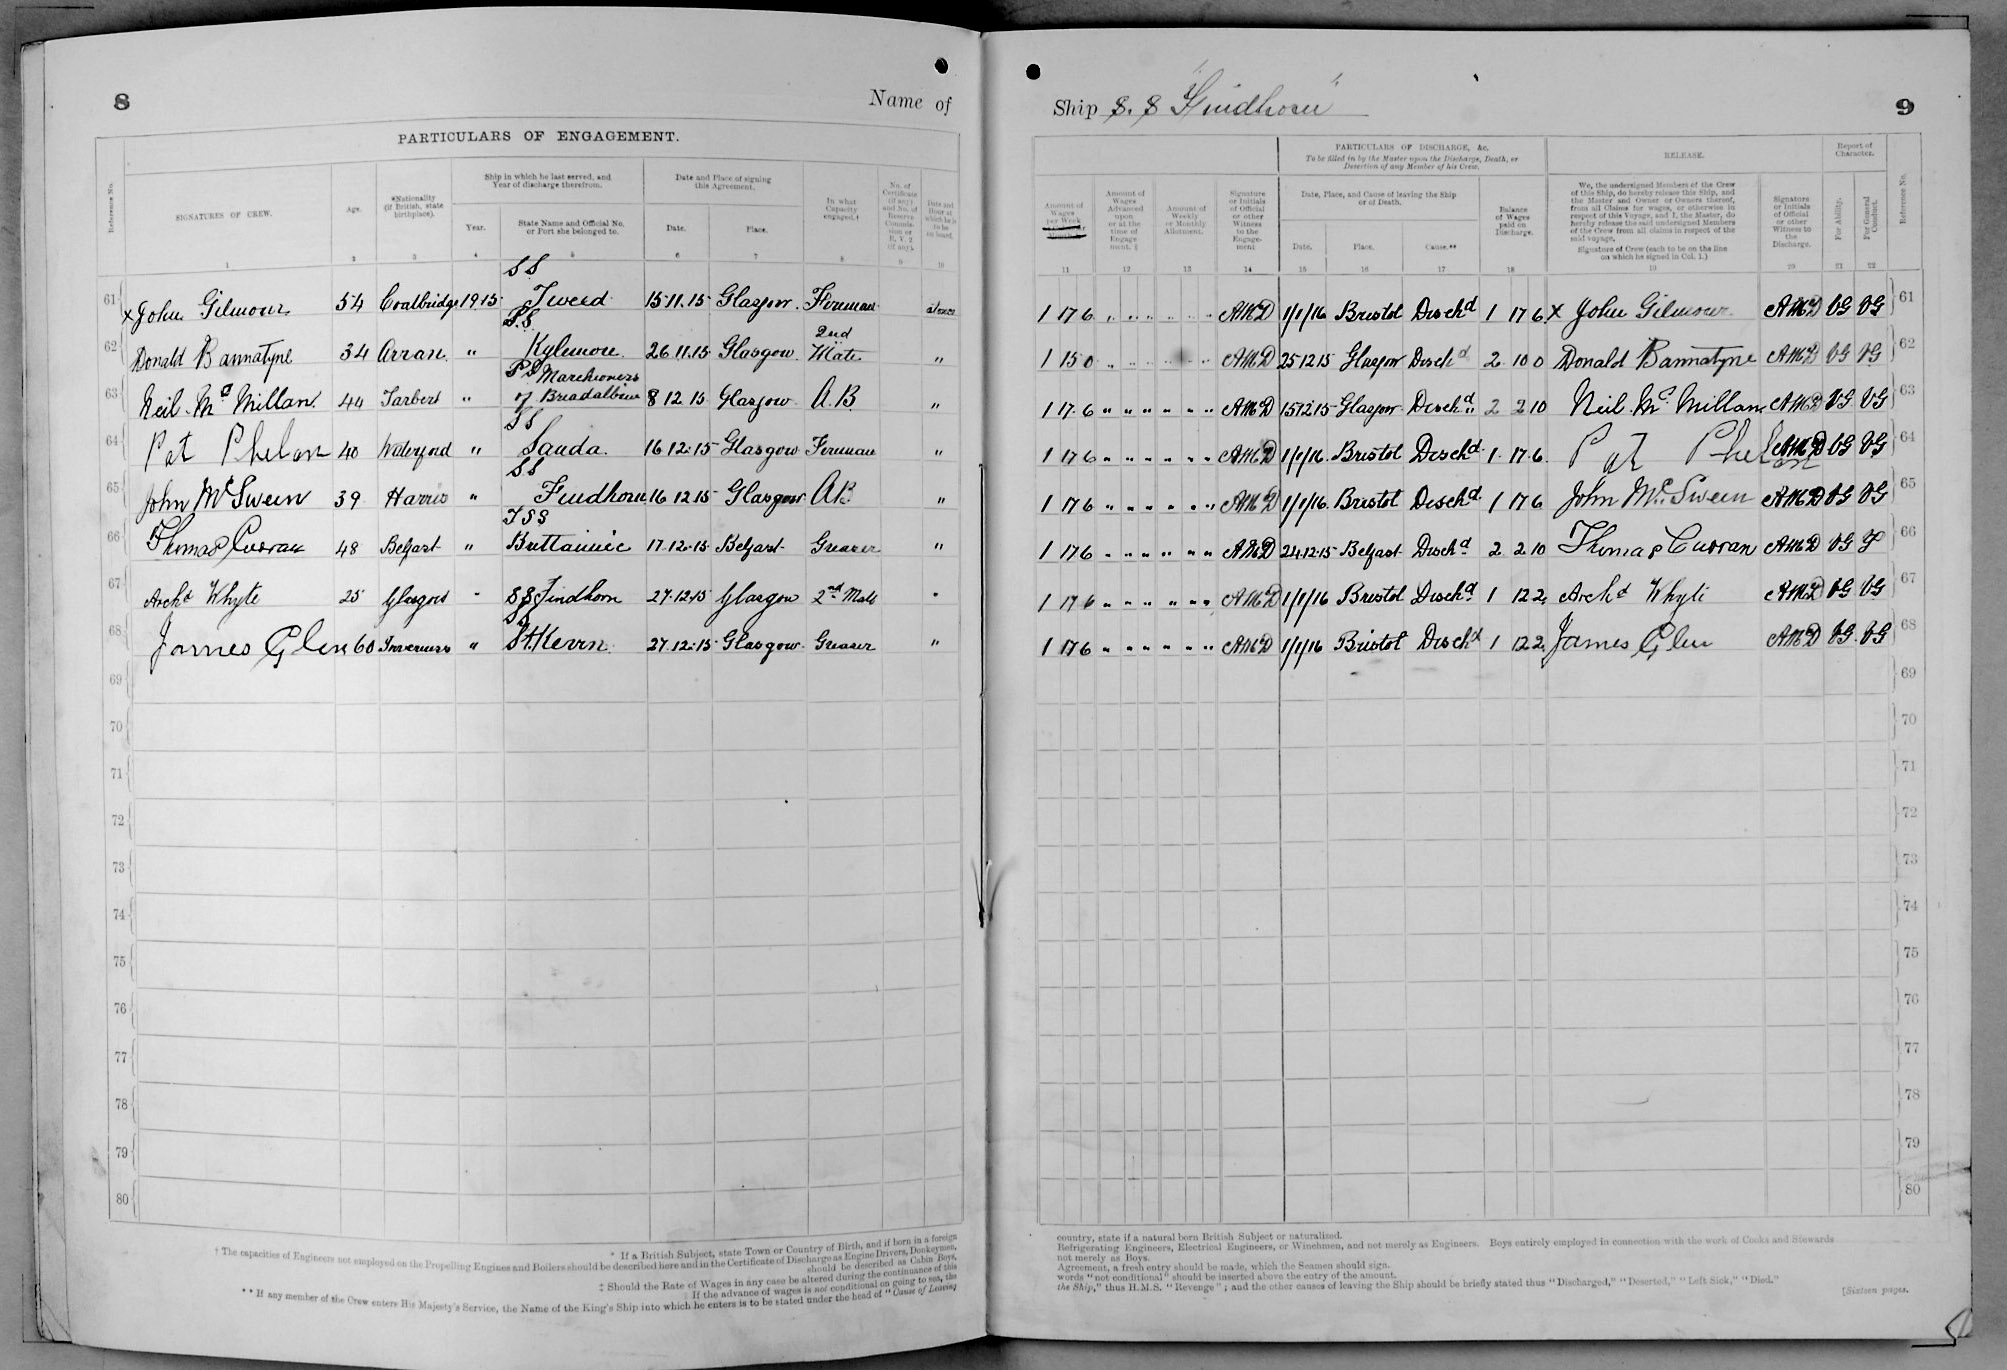 8
Name of
PARTICULARS OF ENGAGEMENT.
Reference No.
SIGNATURES OF CREW.
Age.
*Nationality
(if British, state
birthplace).
Ship in which he last served, and
Year of discharge therefrom.
Year.
State Name and Official No.
or Port she belonged to.
Date and Place of signing
this Agreement.
Date.
Place.
In what
Capacity
engaged.†
No. of
Certificate
(if any),
and No. of
Reserve
Commis-
sion or
R.V.2
(if any).
Date and
Hour at
which he is
to be
on board.
1 2 3 4 5 6 7 8 9 10
S.S
61 x John Gilmour 54 Coatbridge 1915 Tweed 15.11.15 Glasgow Fireman at once
S.S. 2nd
62 Donald Bannatyne 34 Arran " Kylemore 26.11.15 Glasgow Mate "
P S Marchioness
63 Neil Mc Millan 44 Tarbert " of Breadalbane 8 12 15 Glasgow A.B. "
S S
64 Pat Phelan 40 Waterford " Sanda 16.12.15 Glasgow Fireman "
S S
65 John McSween 39 Harris " Findhorn 16 12 15 Glasgow AB "
T S S
66 Thomas Curran 48 Belfast " Brittannic 17.12.15 Belfast Greaser "
67 Archd Whyte 25 Glasgow " S.S Findhorn 27.12.15 Glasgow 2nd Mate "
68 James Glen 60 Inverness " St. Kevin 27.12.15 Glasgow Greaser "
69
70
71
72
73
74
75
76
77
78
79
80
* If a British Subject, state Town or Country of Birth, and if born in a foreign
† The capacities of Engineers not employed on the Propelling Engines and Boilers should be described here and in the Certificate of Discharge as Engine Drivers, Donkeymen,
should be described as Cabin Boys,
‡ Should the Rate of Wages in any case be altered during the continuance of this
If the advance of wages is not conditional on going to sea, the
** If any member of the Crew enters His Majesty's Service, the Name of the King's Ship into which he enters is to be stated under the head of "Cause of Leaving
Ship S. S "Findhorn"
9
Amount of
Wages
per Week
Amount of
Wages
Advanced
upon
or at the
time of
Engage-
ment.
Amount of
Weekly
or Monthly
Allotment.
Signature
or Initials
of Official
or other
Witness
to the
Engage-
ment
PARTICULARS OF DISCHARGE, &c.
To be filled in by the Master upon the Discharge, Death, or
Desertion of any Member of his Crew.
Date, Place, and Cause of leaving the Ship
or of Death.
Date.
Place.
Cause.**
Balance
of Wages
paid on
Discharge.
RELEASE.
We, the undersigned Members of the Crew
of this Ship, do hereby release this Ship, and
the Master and Owner or Owners thereof,
from all Claims for wages, or otherwise in
respect of this Voyage, and I, the Master, do
hereby release the said undersigned Members
of the Crew from all claims in respect of the
said voyage.
Signature of Crew (each to be on the line
on which he signed in Col. 1.)
Signature
or Initials
of Official
or other
Witness to
the
Discharge.
Report of
Character.
For Ability.
For General
Conduct.
Reference No.
11 12 13 14 15 16 17 18 19 20 21 22
1 17 6 " " " " " " AMcD 1/1/16 Bristol Dischd 1 17 6 x John Gilmour AMcD VG VG 61
1 15 0 " " " " " AMcD 25 12 15 Glasgow Dischd 2 10 0 Donald Bannatyne AMcD VG VG 62
1 17 6 " " " " " " AMcD 15 12 15 Glasgow Dischd 2 2 10 Neil Mc Millan AMcD VG VG 63
1 17 6 " " " " " " AMcD 1/1/16 Bristol Dischd 1 17 6 Pat Phelan AMcD VG VG 64
1 17 6 " " " " " " AMcD 1/1/16 Bristol Dischd 1 17 6 John McSween AMcD VG VG 65
1 17 6 " " " " " " AMcD 24.12.15 Belfast Dischd 2 2 10 Thomas Curran AMcD VG 66
1 17 6 " " " " " " AMcD 1/1/16 Bristol Dischd 1 12 2 Archd Whyte AMcD VG VG 67
1 17 6 " " " " " " AMcD 1/1/16 Bristol Dischd 1 12 2 James Glen AMcD VG VG 68
69
70
71
72
73
74
75
76
77
78
79
80
country, state if a natural born British Subject or naturalized.
Refrigerating Engineers, Electrical Engineers, or Winchmen, and not merely as Engineers. Boys entirely employed in connection with the work of Cooks and Stewards
not merely as Boys.
Agreement, a fresh entry should be made, which the Seamen should sign.
words "not conditional" should be inserted above the entry of the amount.
the Ship," thus H.M.S. "Revenge"; and the other causes of leaving the Ship should be briefly stated thus "Discharged," "Deserted," "Left Sick," "Died."
[Sixteen pages.